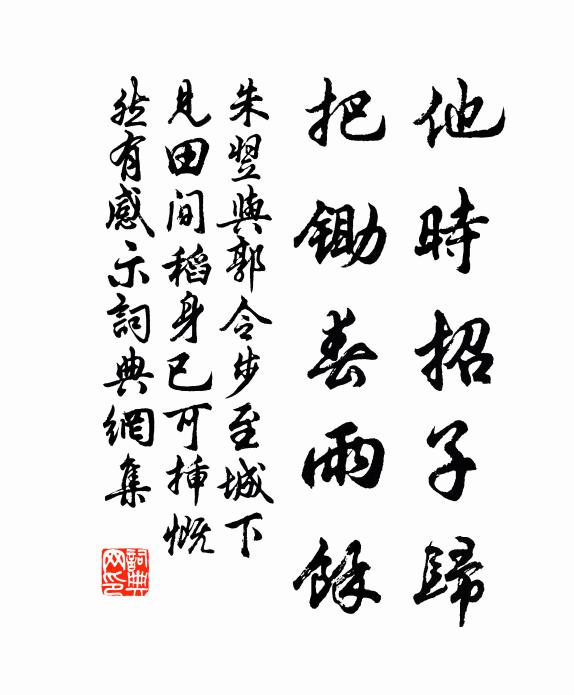 他時招子歸
把鋤春雨餘
朱翌與郭令步至城下
見田間稻身已可插慨
然有感示詞典網集
詞典網印